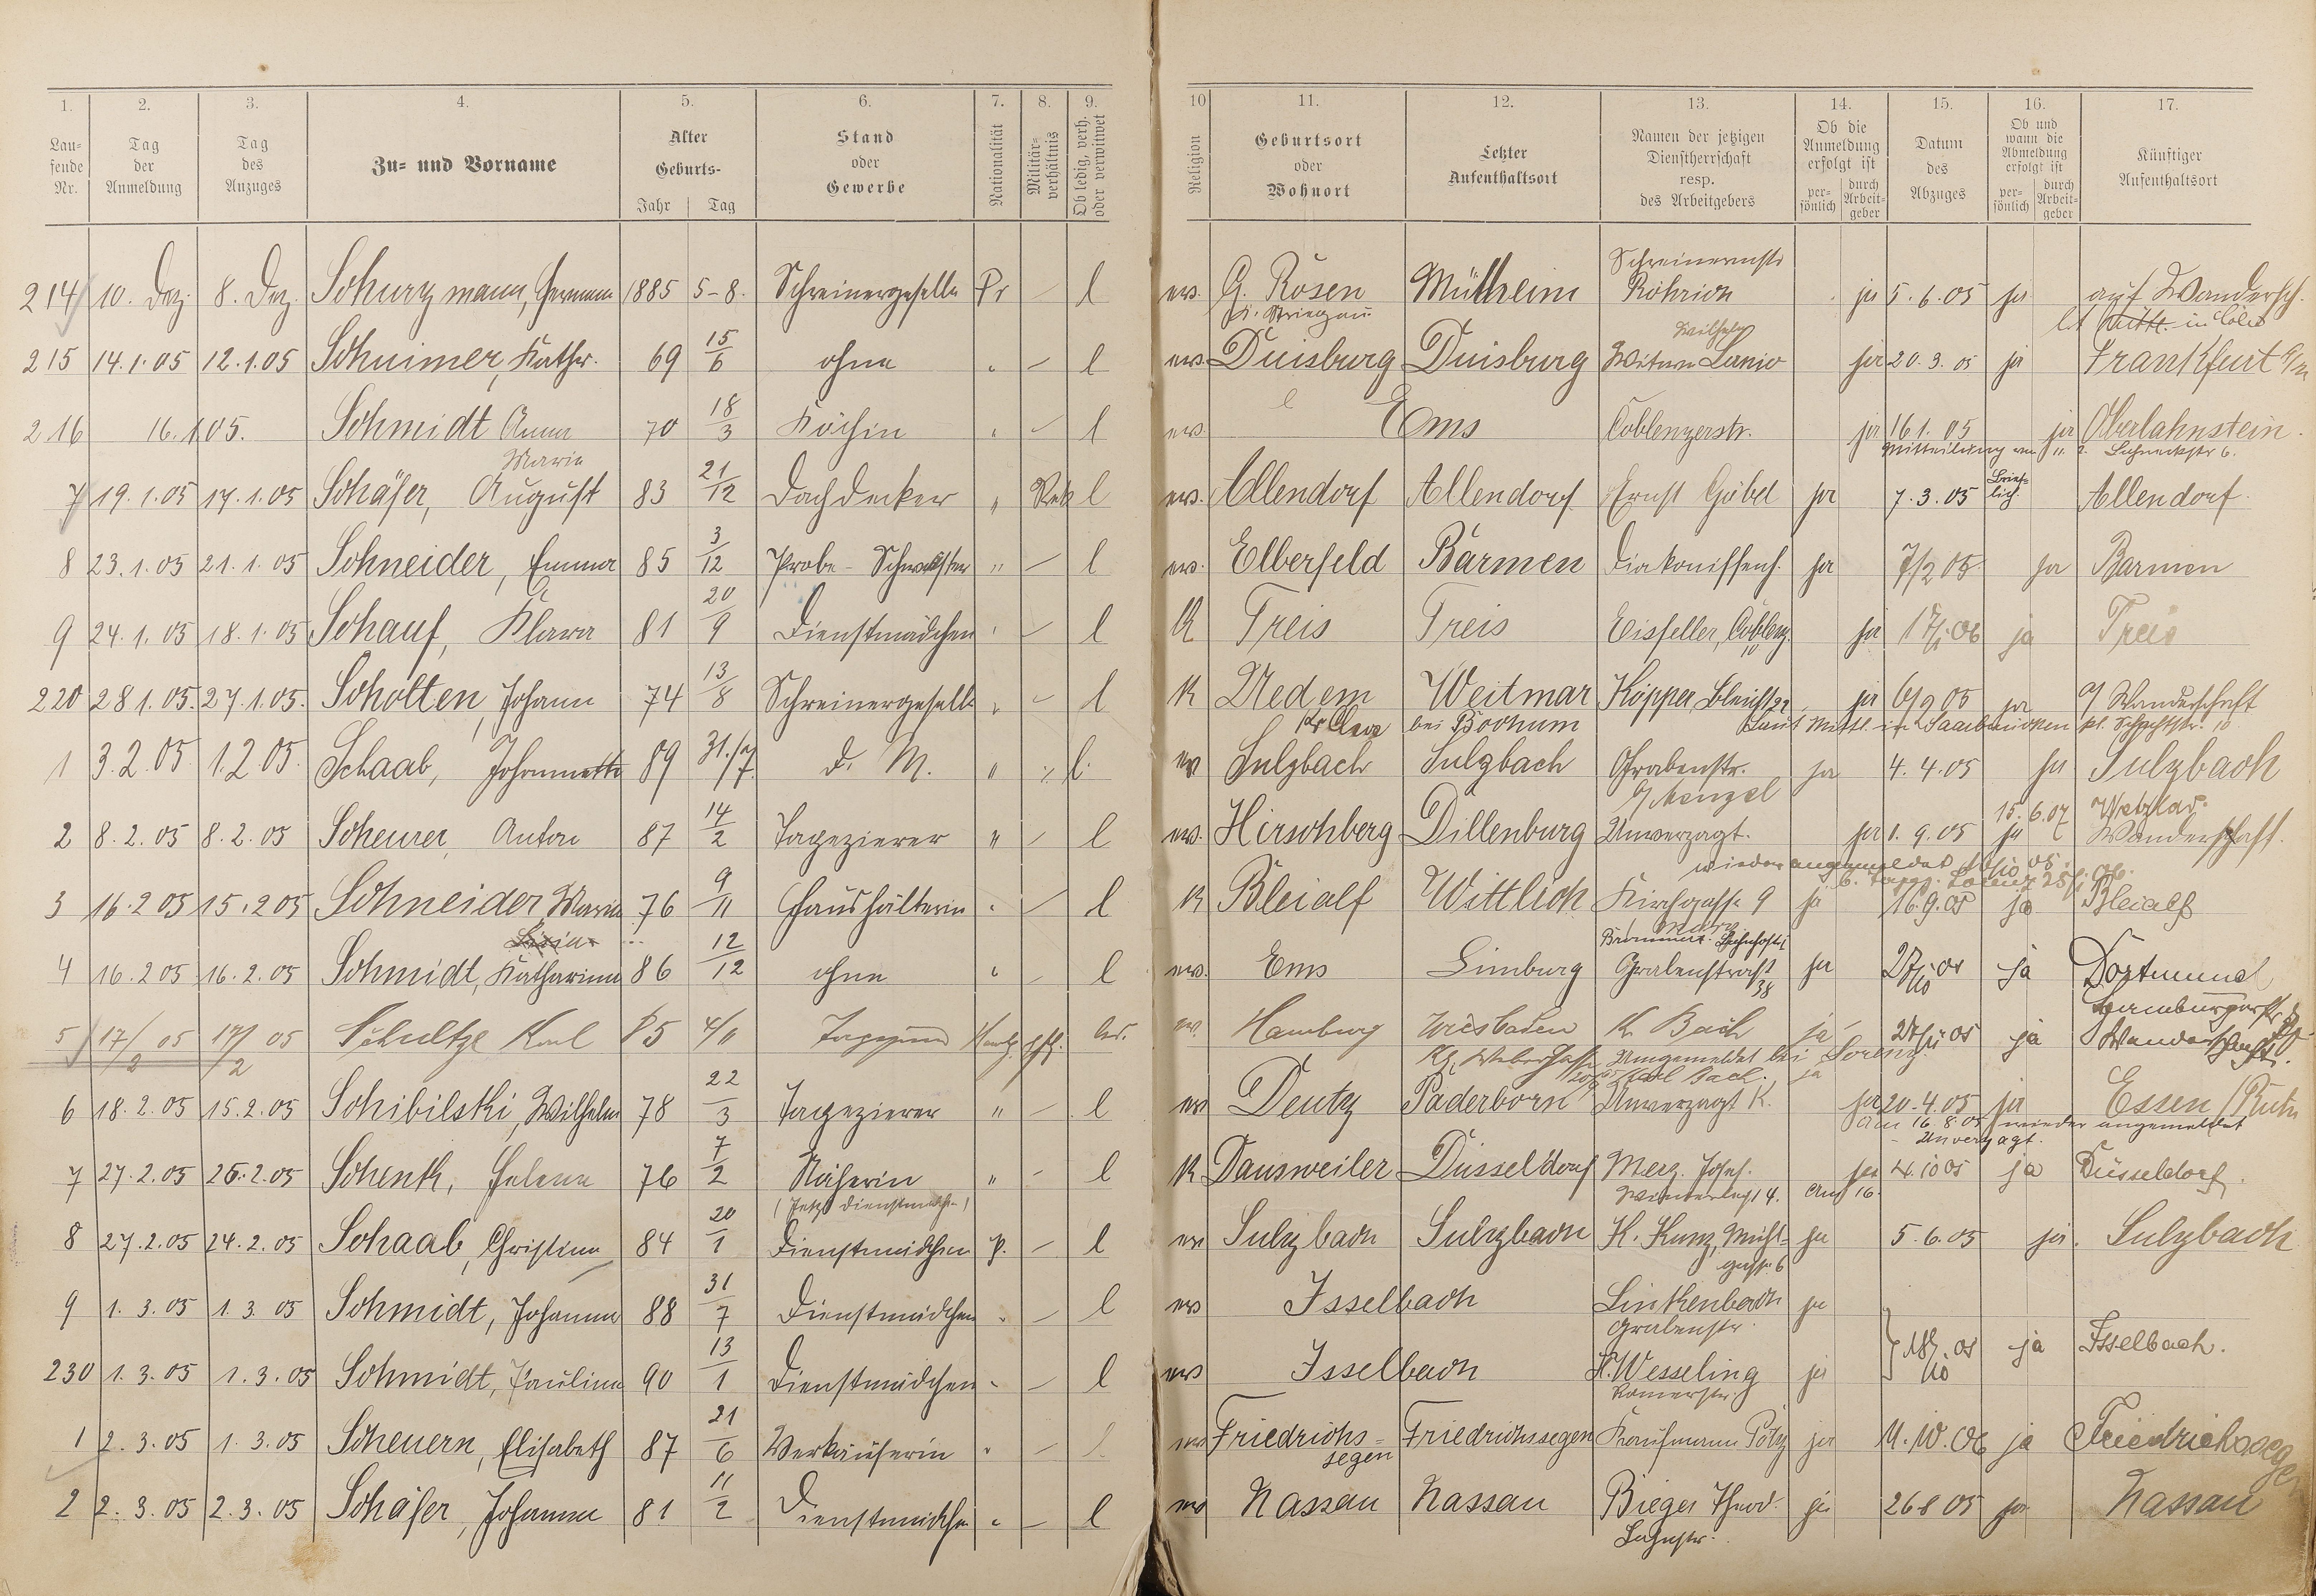 1. 2. 3. 4. 5. 6. 7. 8. 9. 10 11. 12. 13. 14. 15. 16. 17.
Lau-
fende
Nr.
Tag
der
Anmeldung
Tag
des
Anzuges
Zu- und Vorname
Alter
Geburts-
Jahr Tag
Stand
oder
Gewerbe
Nationalität
Militär-
verhältnis
Ob ledig, verh.
oder verwitwet
Religion
Geburtsort
oder
Wohnort
Letzter
Aufenthaltsort
Namen der jetzigen
Dienstherrschaft
resp.
des Arbeitgebers
Ob die
Anmeldung
erfolgt ist
per-
sönlich
durch
Arbeit-
geber
Datum
des
Abzuges
Ob und
wann die
Abmeldung
erfolgt ist
per-
sönlich
durch
Arbeit-
geber
Künftiger
Aufenthaltsort
214 10. Dez. 8. Dez. Schurzmann, Hermann 1885 5-8. Schreinergeselle Pr — l ev. G. Rosen Mülheim Röhrich ja 5.6.05 ja auf Wandersch.
Kr. Striegau
215 14.1.05 12.1.05 Schuimer, Kathr. 69 15/6 ohne " — l ev. Duisburg Duisburg Witwe Lanio ja 20.3.05 ja Frankfurt a/m
Wilhelm
216 16.1.05. Schmidt Anna 70 18/3 Köchin " — l ev. Ems Coblenzerstr. ja 16 1. 05 ja Oberlahnstein.
Maria
7 19.1.05 17.1.05 Schäfer, August 83 21/12 Dachdecker " l ev. Allendorf Allendorf Ernst Göbel ja 7.3.05 Brief-
lich Allendorf
8 23.1.05 21.1.05 Schneider, Emma 85 3/12 Probe-Schwester " — l ev. Elberfeld Barmen Diakonissenh. ja 7/2 05 ja Barmen
9 24.1.05 18.1.05 Schauf, Klara 81 20/9 Dienstmädchen " — l K Treis Treis Eisfeller, Coblenz. ja 17/1 06 ja Treis
220 28 1.05. 27.1.05. Scholten, Johann 74 13/8 Schreinergeselle " — l K Uedem Weitmar Köpper, Bleichstr 22 ja 6/9 05 ja a/ Wanderschaft
Kr Cleve bei Bochum Laut Mittl. in Saarbrücken
1 3.2.05 1.2 05. Schaab, Johannette 89 31./7. d. M. " l ev Sulzbach Sulzbach Grabenstr. ja 4.4.05 ja Sulzbach
2 8.2.05 8.2.05 Scheurer, Anton 87 14/2 Tapezierer " — l ev. Hirschberg Dillenburg Unverzagt. ja 1.9.05 ja Wanderschaft.
15.6.07 Wetzlar.
wieder angemeldet
3 16.2 05 15.2 05 Schneider, Maria 76 9/11 Haushälterin " — l K Bleialf Wittlich Kirchgasse 9 ja 16.9.05 ja Bleialf
4 16.2 05 16.2.05 Schmidt, Katharina 86 12/12 ohne " — l ev. Ems Limburg Grabenstraße 38 ja 27/10 05 ja Dortmund
5 17/2 05 17/2 05 Schultze Karl 85 4/11 ev. Hamburg Wiesbaden K. Bach ja 27/11 05 ja Wanderschaft.
Umgemeldet bei Lorenz.
6 18.2.05 15.2.05 Schibilski, Wilhelm 78 22/3 Tapezierer " — l ev Deutz Paderborn Unverzagt K. ja 20.4.05 ja Essen/Ruhr
am 16.8.05 wieder angemeldet
Unverzagt.
7 27.2.05 26.2.05 Schenk, Helene 76 7/2 Näherin " — l K Dansweiler Düsseldorf Merz. Josef. ja 4.10 05 ja Düsseldorf.
(Jetzt Dienstmädch.)
8 27.2.05 24.2.05 Schaab, Christina 84 20/1 Dienstmädchen P. — l ev Sulzbach Sulzbach K. Kunz, Mühl-
gasse 6 ja 5.6.05 ja. Sulzbach
9 1.3.05 1.3 05 Schmidt, Johanna 88 31/7 Dienstmädchen " — l ev Isselbach Linkenbach ja
Grabenstr.
230 1.3.05 1.3.05 Schmidt, Pauline 90 13/1 Dienstmädchen " — l ev Isselbach H. Wesseling ja 18/10 05 ja Isselbach.
Römerstr.
1 2.3.05 1.3.05 Scheuern, Elisabeth 87 21/6 Verkäuferin " — l ev Friedrichs-
segen Friedrichssegen Kaufmann Pötz ja 11.10.06 ja Friedrichssegen
2 2.3.05 2.3.05 Schäfer, Johanna 81 11/2 Dienstmädchen " — l ev Nassau Nassau Bieger Theod. ja 26 8 05 ja Nassau
Lahnstr.